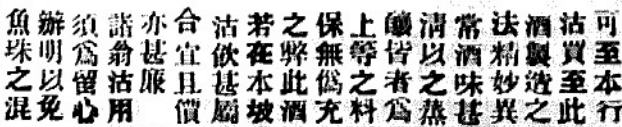 可至本行
沽買至此
酒製造之
法精妙異
常酒味甚
淸以之蒸
釀皆者爲
上等之料
保無僞充
之弊此酒
若在本坡
沽飲甚屬
合宜且價
亦甚廉
諸翁沽用
須爲留心
辦明以免
魚珠之混